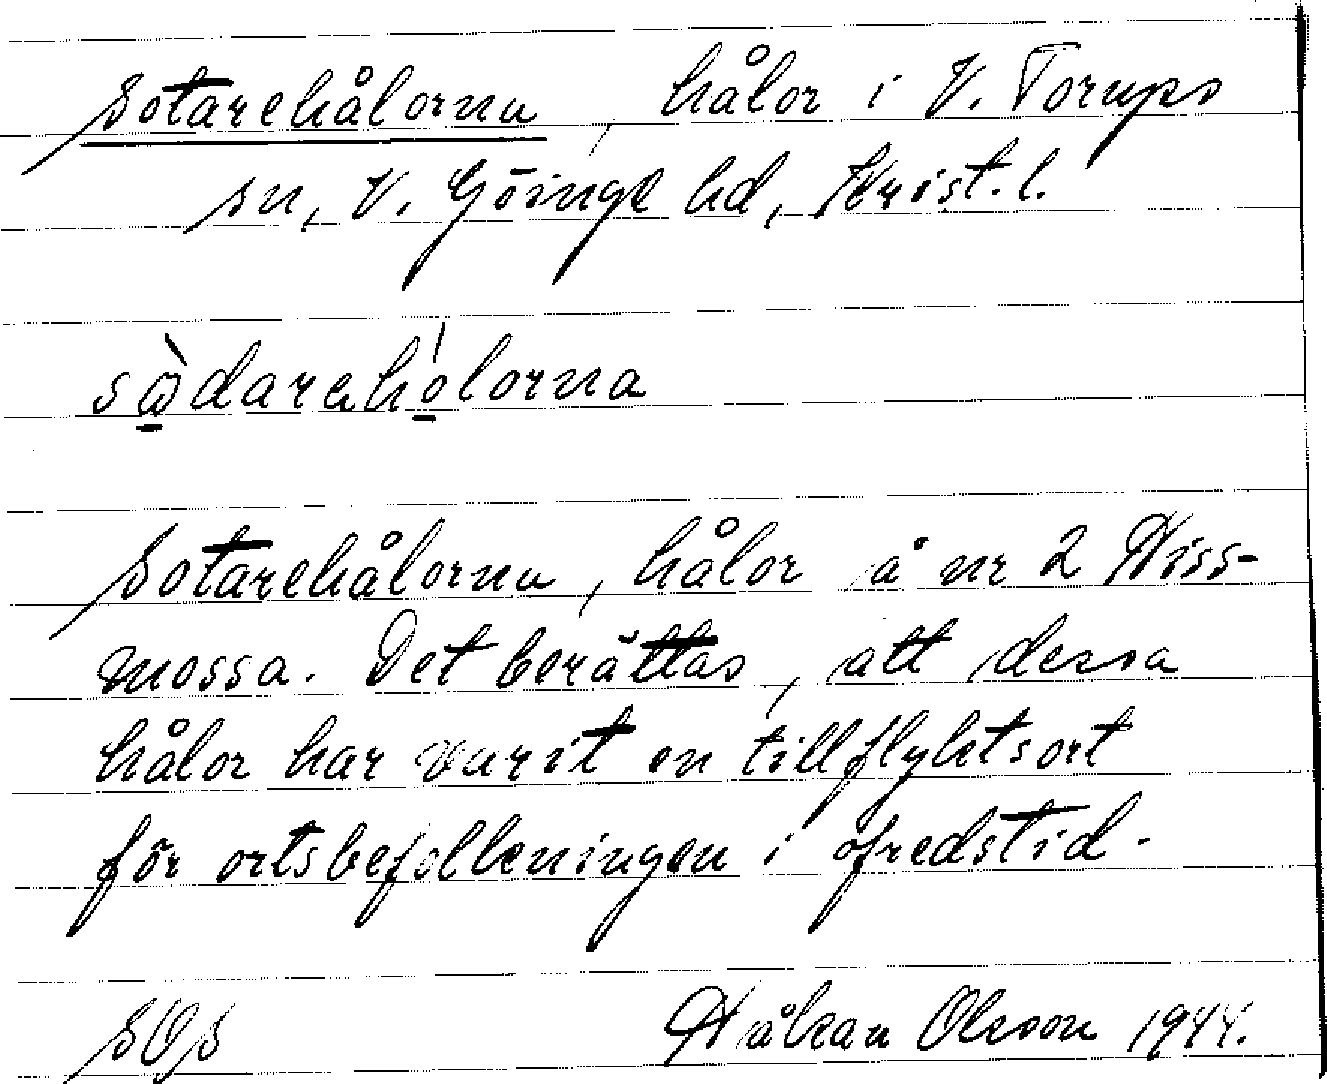 Sotarehålorna, hålor i V. Torups
sn, V. Göinge hd, Krist. l.
sὼ̱darehó̱lorna
Sotarehålorna, hålor å nr 2 Hiss-
mossa. Det berättas, att dessa
hålor har varit en tillflyktsort
för ortsbefolkningen i ofredstid.
SOS Håkan Olsson 1944.